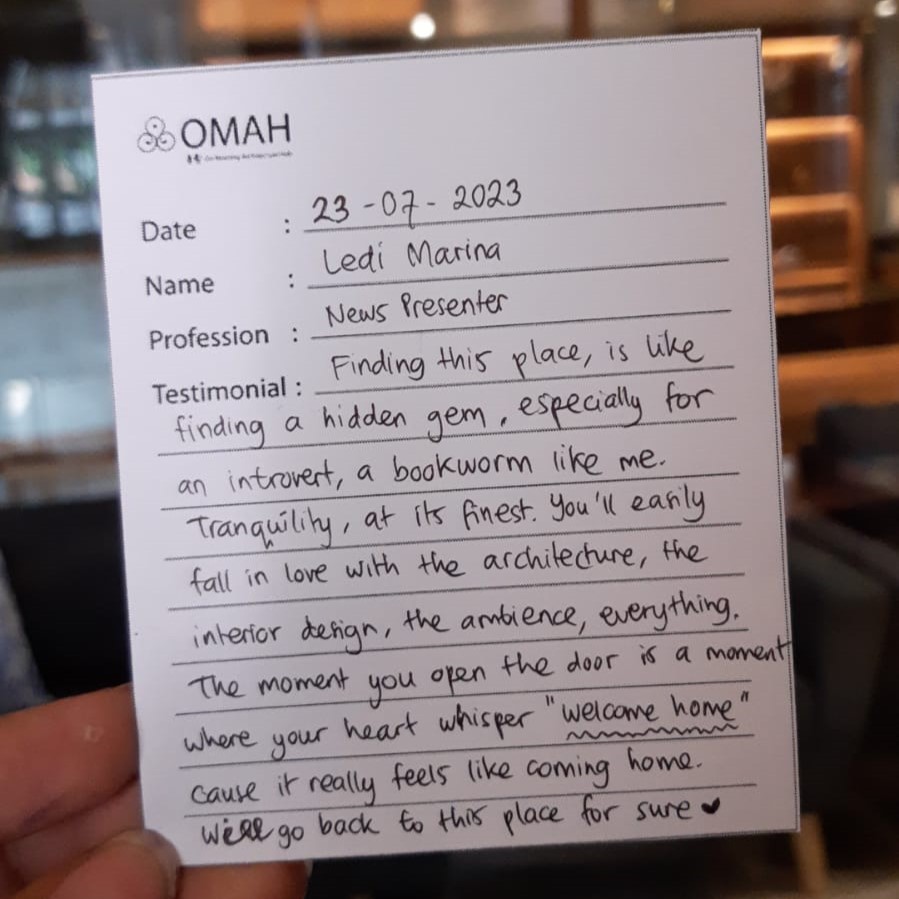 OMAH
Date : 23 - 07 - 2023
Name : Ledi Marina
Profession : News Presenter
Testimonial : Finding this place, is like
finding a hidden gem, especially for
an introvert, a bookworm like me.
Tranquility, at its finest. You'll easily
fall in love with the architecture, the
interior design, the ambience, everything.
The moment you open the door is a moment
where your heart whisper "welcome home"
cause it really feels like coming home.
We'll go back to this place for sure ♥